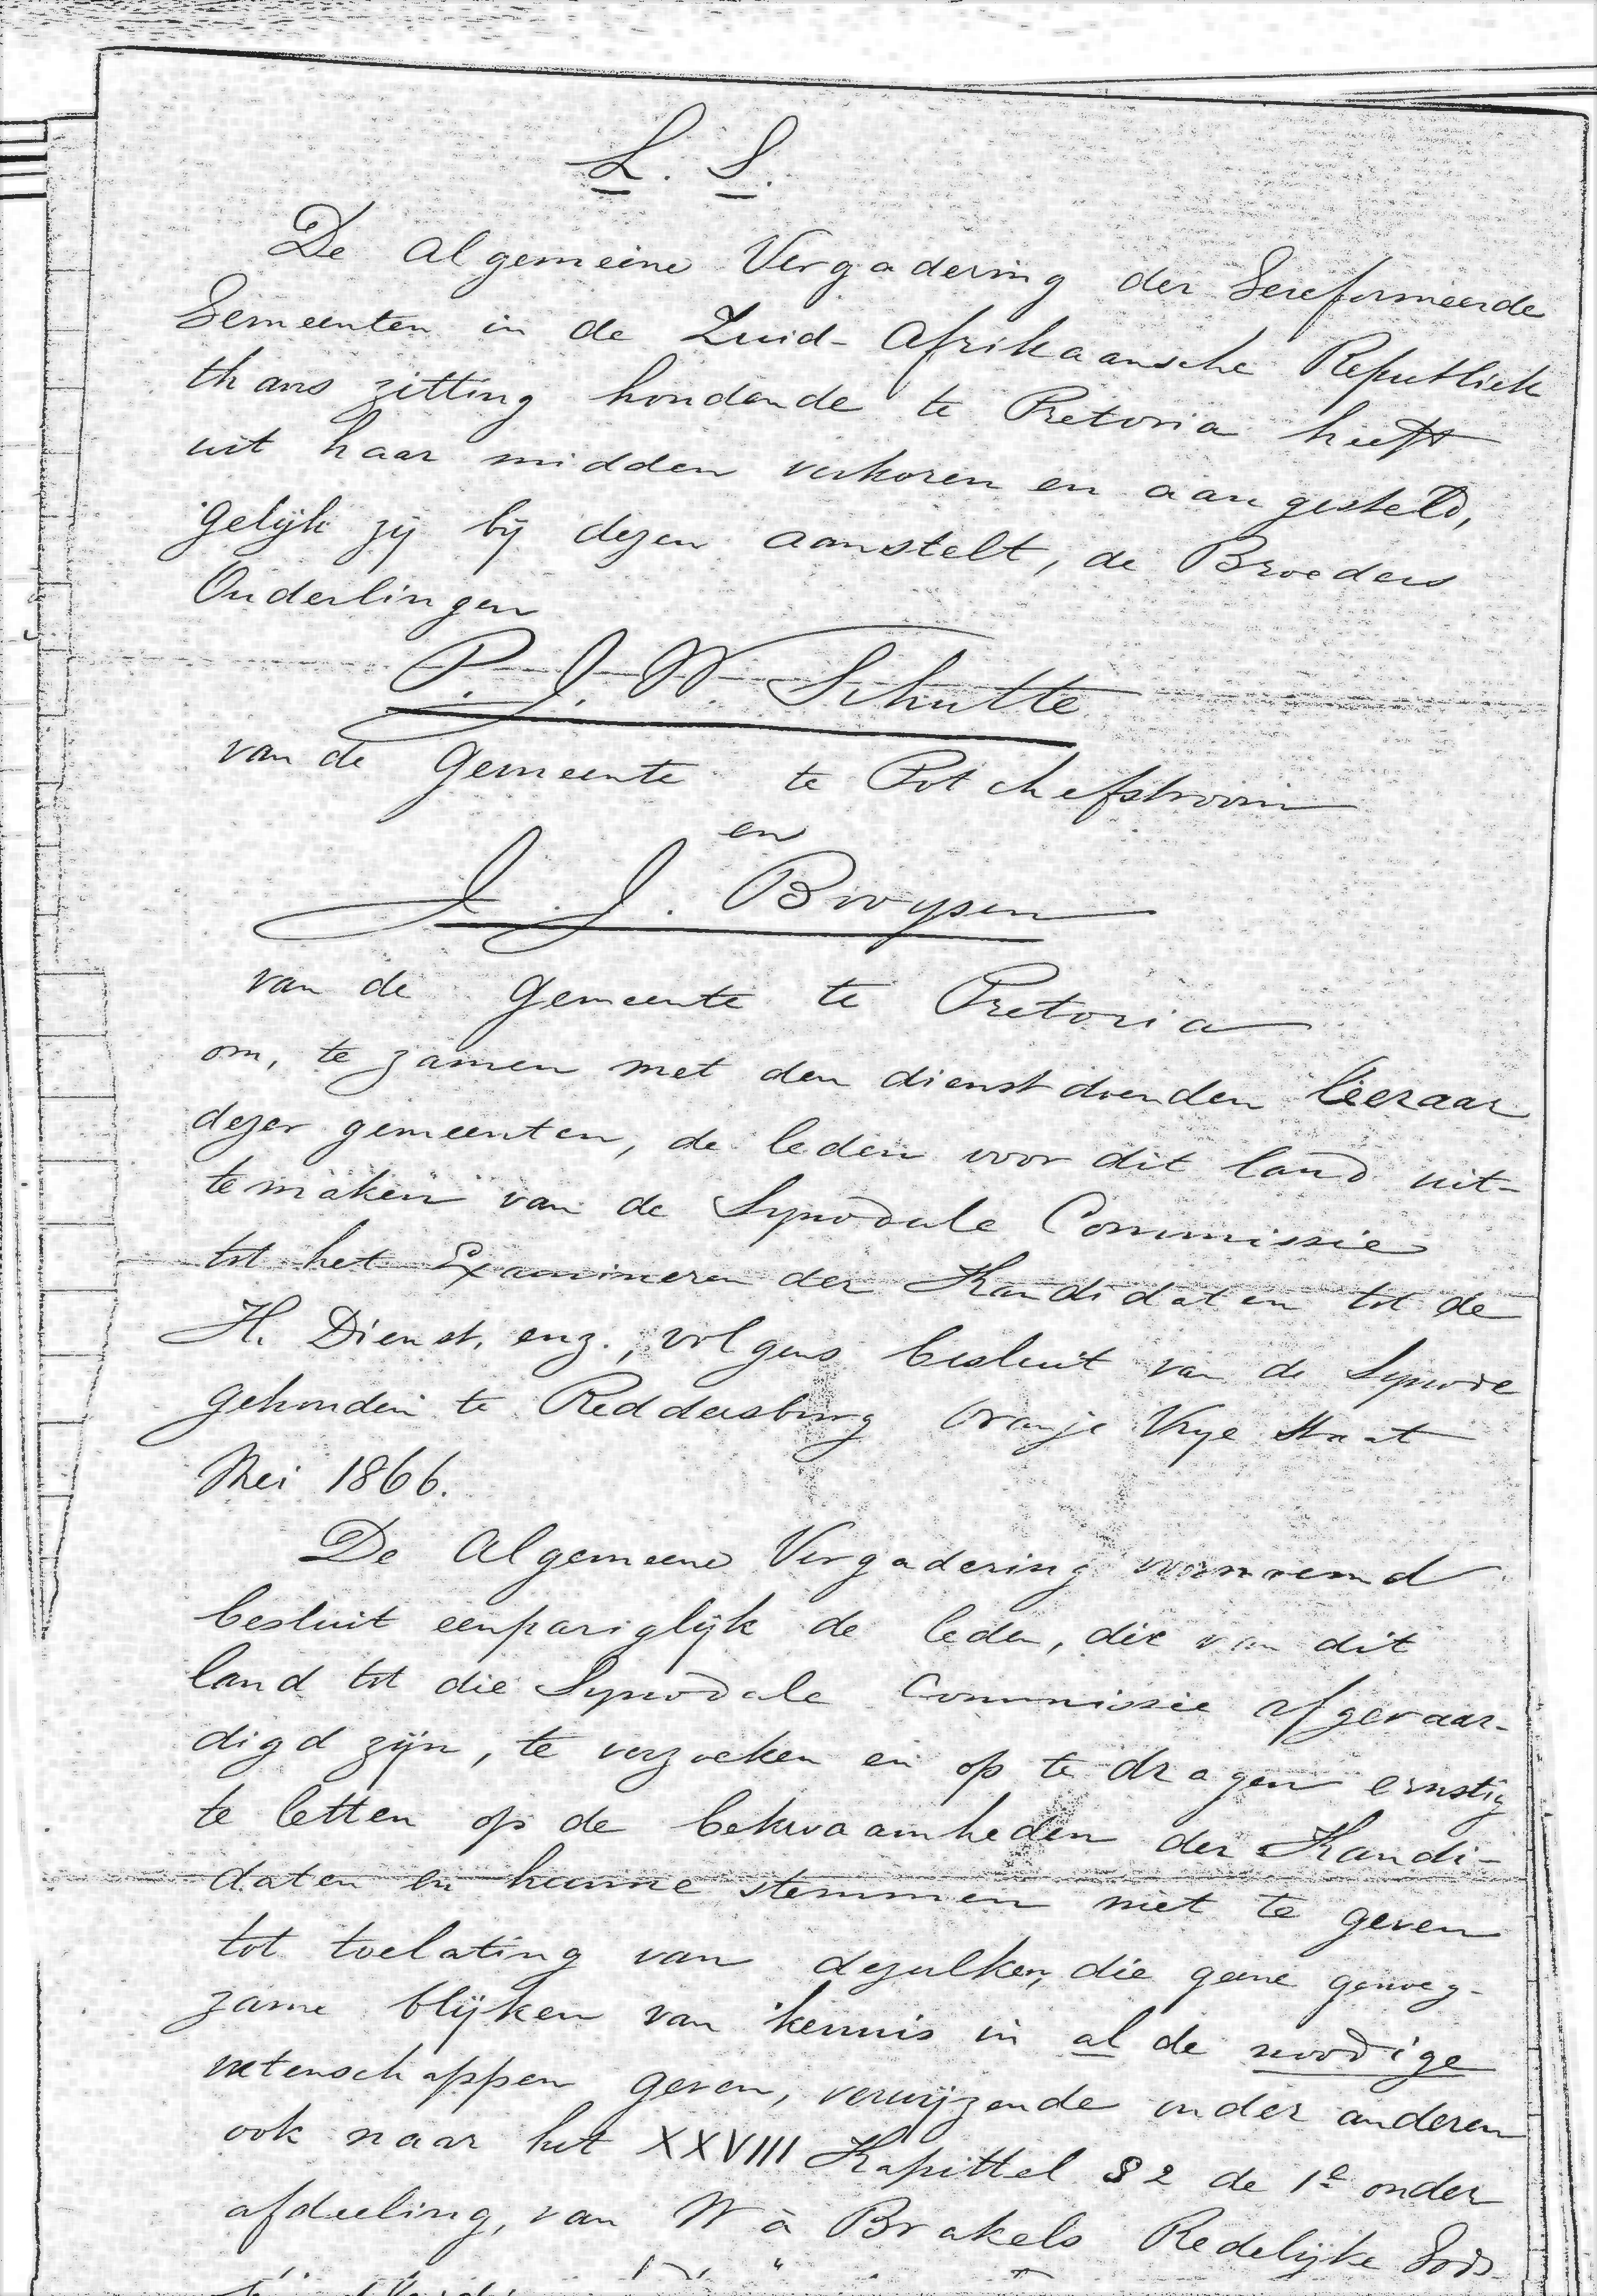 L. S.
De Algemeene Vergadering der Gereformeerde
Gemeenten in de Zuid-Afrikaansche Republiek
thans zitting houdende te Pretoria heeft
uit haar midden verkoren en aangesteld,
gelijk zij bij dezen aanstelt, de Broeders
Ouderlingen
P. J. W. Schutte
van de Gemeente te Potchefstroom
en
J. J. Bruysen
van de Gemeente te Pretoria
om, te zamen met den dienstdoenden leeraar
dezer gemeenten, de leden voor dit land uit-
temaken van de Synodale Commissie
tot het Examineren der Kandidaten tot de
H. Dienst, enz., volgens besluit van de Synode
gehouden te Reddersburg Oranje Vrye Staat
Mei 1866.
De Algemeene Vergadering voornoemd
besluit eenpariglijk de leden, die van dit
land tot die Synodale Commissie afgevaar-
digd zijn, te verzoeken en op te dragen ernstig
te letten op de bekwaamheden der Kandi-
daten en hunne stemmen niet te geven
tot toelating van dezulken, die geene genoeg-
zame blijken van kennis in al de noodige
wetenschappen geven, verwijzende onder anderen
ook naar het XXVIII Kapittel § 2 de 1e onder
afdeeling, van W à Brakels Redelijke Gods-